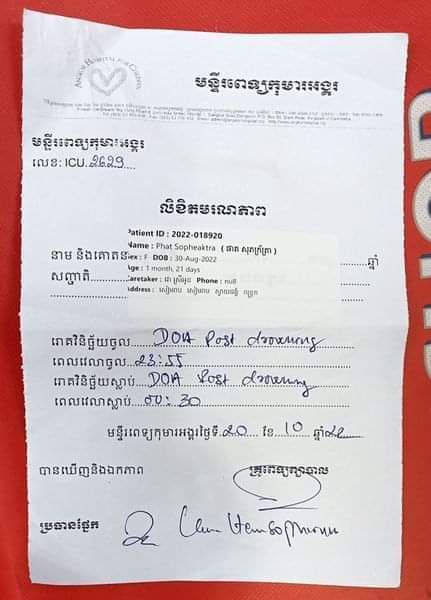 ANGKOR HOSPITAL FOR CHILDREN
មន្ទីរពេទ្យកុមារអង្គរ
មន្ទីរពេទ្យកុមារអង្គរ
លេខ: ICU 2629
លិខិតមរណភាព
Patient ID : 2022-018920
Name : Phat Sopheaktra
Sex : F DOB : 30-Aug-2022
Age : 1 month, 21 days
Caretaker : Phone : null
Address : សៀមរាប សៀមរាប
នាម និងគោត្តនាម ឆ្នាំ
សញ្ជាតិ
រោគវិនិច្ឆ័យចូល DOA Post drowning
ពេលវេលាចូល 23:55
រោគវិនិច្ឆ័យស្លាប់ DOA Post drowning
ពេលវេលាស្លាប់ 00:30
មន្ទីរពេទ្យកុមារអង្គរថ្ងៃទី 20 ខែ 10 ឆ្នាំ 22
បានឃើញនិងឯកភាព
គ្រូពេទ្យព្យាបាល
ប្រធានផ្នែក